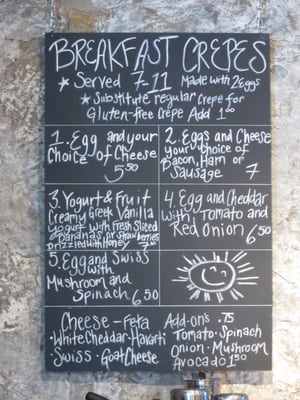 BREAKFAST CREPES
★ Served 7-11 Made with 2 Eggs
★ Substitute regular Crepe for
Gluten-free Crepe Add 1.00
1. Egg and your
Choice of Cheese
5.50
2. Eggs and Cheese
your choice of
Bacon, Ham or
Sausage 7
3. Yogurt & Fruit
Creamy Greek Vanilla
Yogurt with Fresh Sliced
Bananas or Strawberries
Drizzled with Honey
4. Egg and Cheddar
with Tomato and
Red Onion 6.50
5. Egg and Swiss
with
Mushroom and
Spinach 6.50
Cheese - Feta
• White Cheddar • Havarti
• Swiss • Goat Cheese
Add-on's .75
Tomato • Spinach
Onion • Mushroom
Avocado 1.50